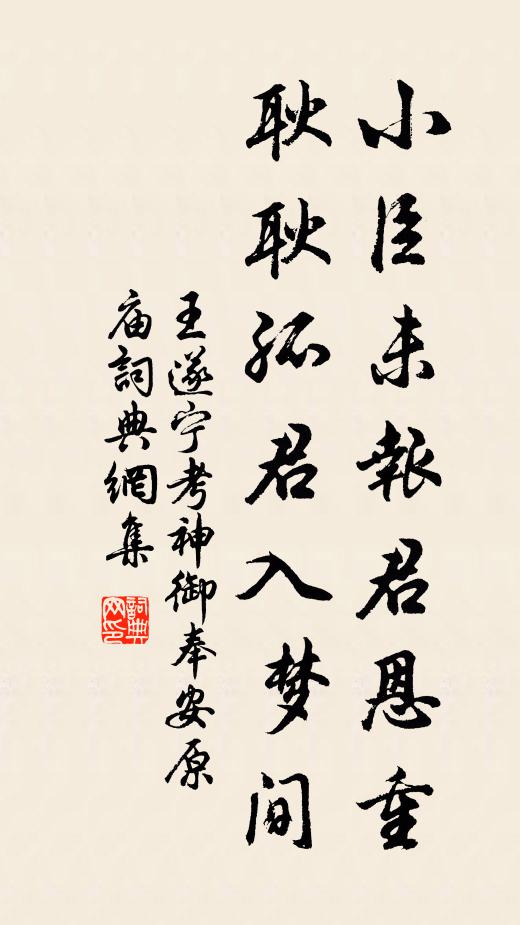 小臣未報君恩重
耿耿孤君入梦间
王遂宁考神御奉安原
庙詞典網集
詞典网印